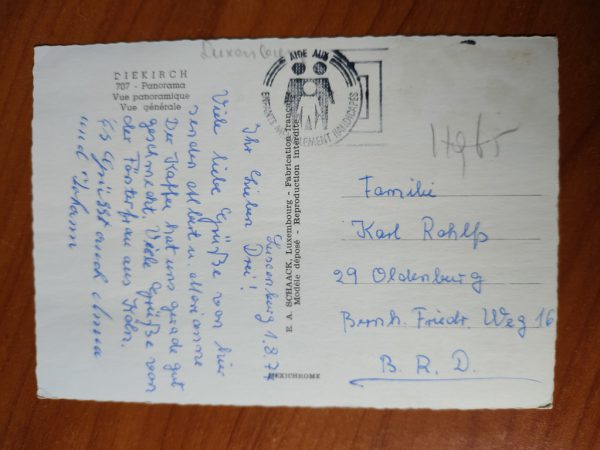 DIEKIRCH
707 - Panorama
Vue panoramique
Vue générale
AIDE AUX
ENFANTS MENTALEMENT HANDICAPES
Luxemburg 1.8.77
Ihr lieben Drei!
Viele liebe Grüße von hier
senden Albert u. Marianne
Der Kaffee hat uns gerade gut
geschmeckt. Viele Grüße von
der Försterfrau aus Köln.
Es grüsst auch Anna
und Johann
E. A. SCHAACK, Luxembourg - Fabrication française
Modèle déposé - Reproduction interdite
MEXICHROME
Familie
Karl Rohlfs
29 Oldenburg
Bernh. Friedr. Weg 16
B. R. D.